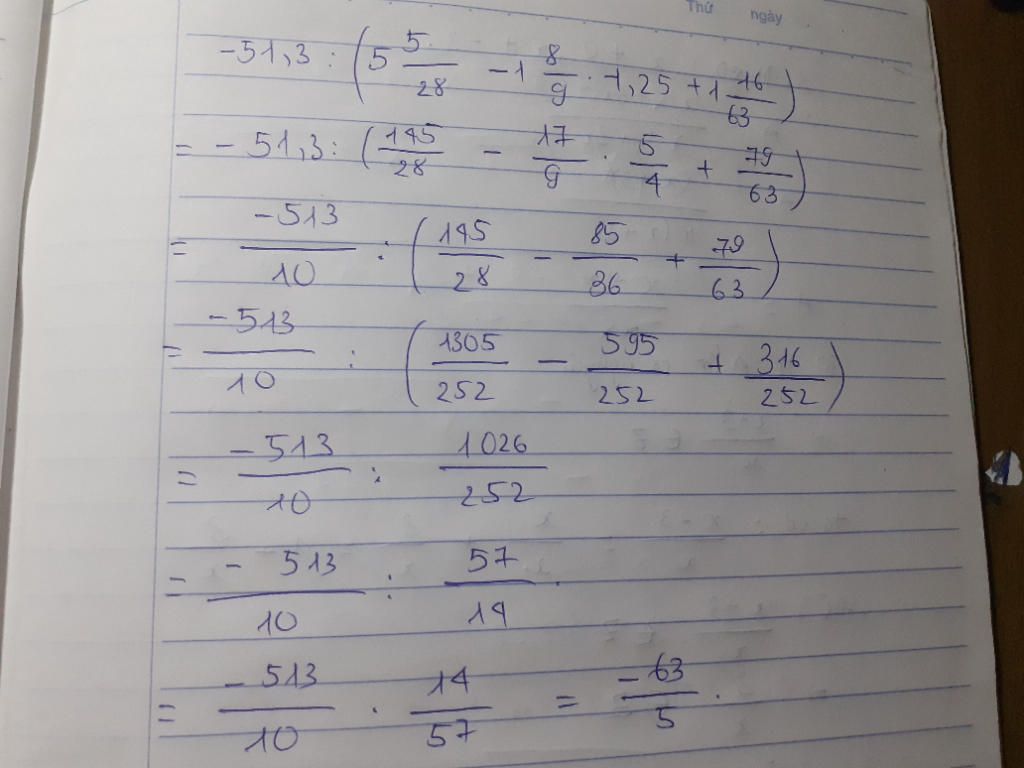 Thứ ngày
-51,3 : (5 5/28 - 1 8/9 . 1,25 + 1 16/63)
= - 51,3 : (145/28 - 17/9 . 5/4 + 79/63)
= -513/10 : (145/28 - 85/36 + 79/63)
= -513/10 : (1305/252 - 595/252 + 316/252)
= -513/10 : 1026/252
= - 513/10 : 57/14 .
= -513/10 . 14/57 = -63/5 .